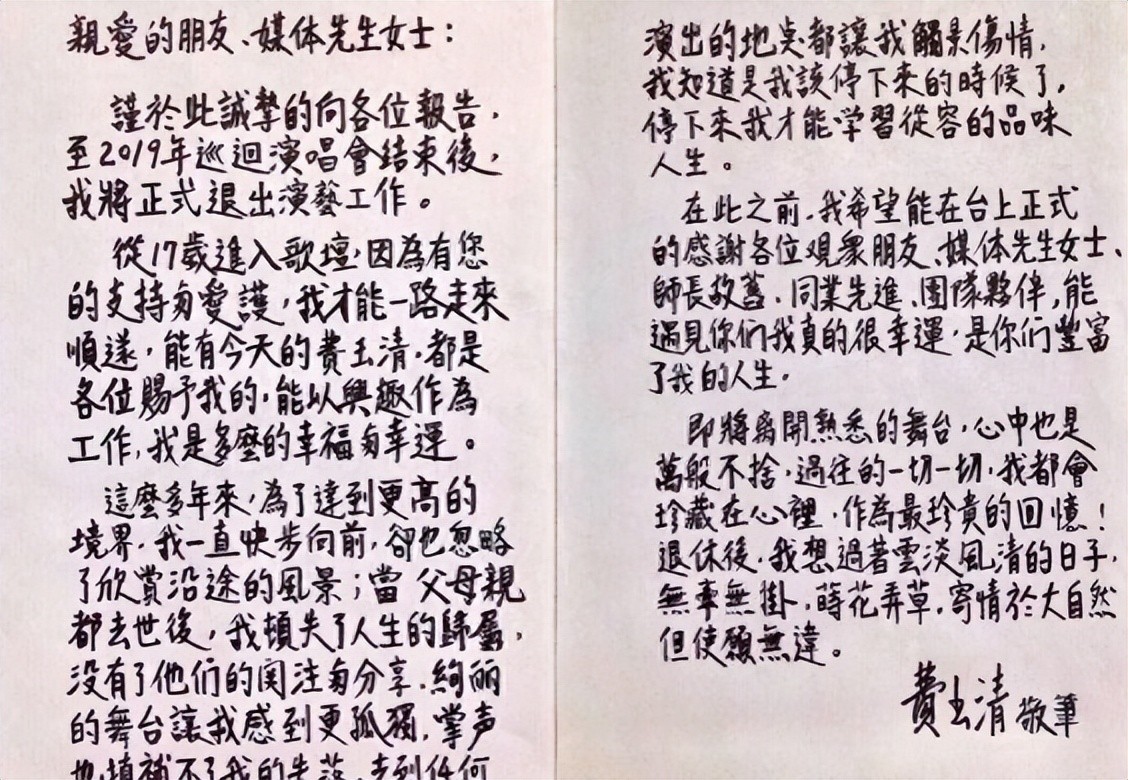 親愛的朋友、媒体先生女士：
謹於此誠摯的向各位報告，
至2019年巡迴演唱會结束後，
我將正式退出演藝工作。
從17歲進入歌壇，因為有您
的支持与愛護，我才能一路走來
順遂，能有今天的費玉清，都是
各位賜予我的，能以興趣作為
工作，我是多麼的幸福与幸運。
這麼多年來，為了達到更高的
境界，我一直快步向前，卻也忽略
了欣賞沿途的風景；當父母親
都去世後，我頓失了人生的歸屬，
没有了他们的関注与分享，絢丽
的舞台讓我感到更孤獨，掌声
也填補不了我的失落，去到任何
演出的地点都讓我觸景傷情，
我知道是我該停下來的時候了，
停下來我才能学習從容的品味
人生。
在此之前，我希望能在台上正式
的感謝各位观衆朋友、媒体先生女士、
師長故舊、同業先進、團隊夥伴，能
遇見你们我真的很幸運，是你们豐富
了我的人生。
即將离開熟悉的舞台，心中也是
萬般不捨，過往的一切一切，我都會
珍藏在心裡，作為最珍貴的回憶！
退休後，我想過著雲淡風清的日子，
無牽無掛，蒔花弄草，寄情於大自然
但使願無違。
費玉清 敬筆